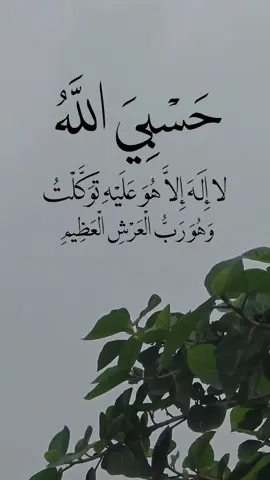 حَسْبِيَ اللَّهُ
لا إِلَهَ إِلاَّ هُوَ عَلَيْهِ تَوَكَّلْتُ
وَهُوَ رَبُّ الْعَرْشِ الْعَظِيمِ